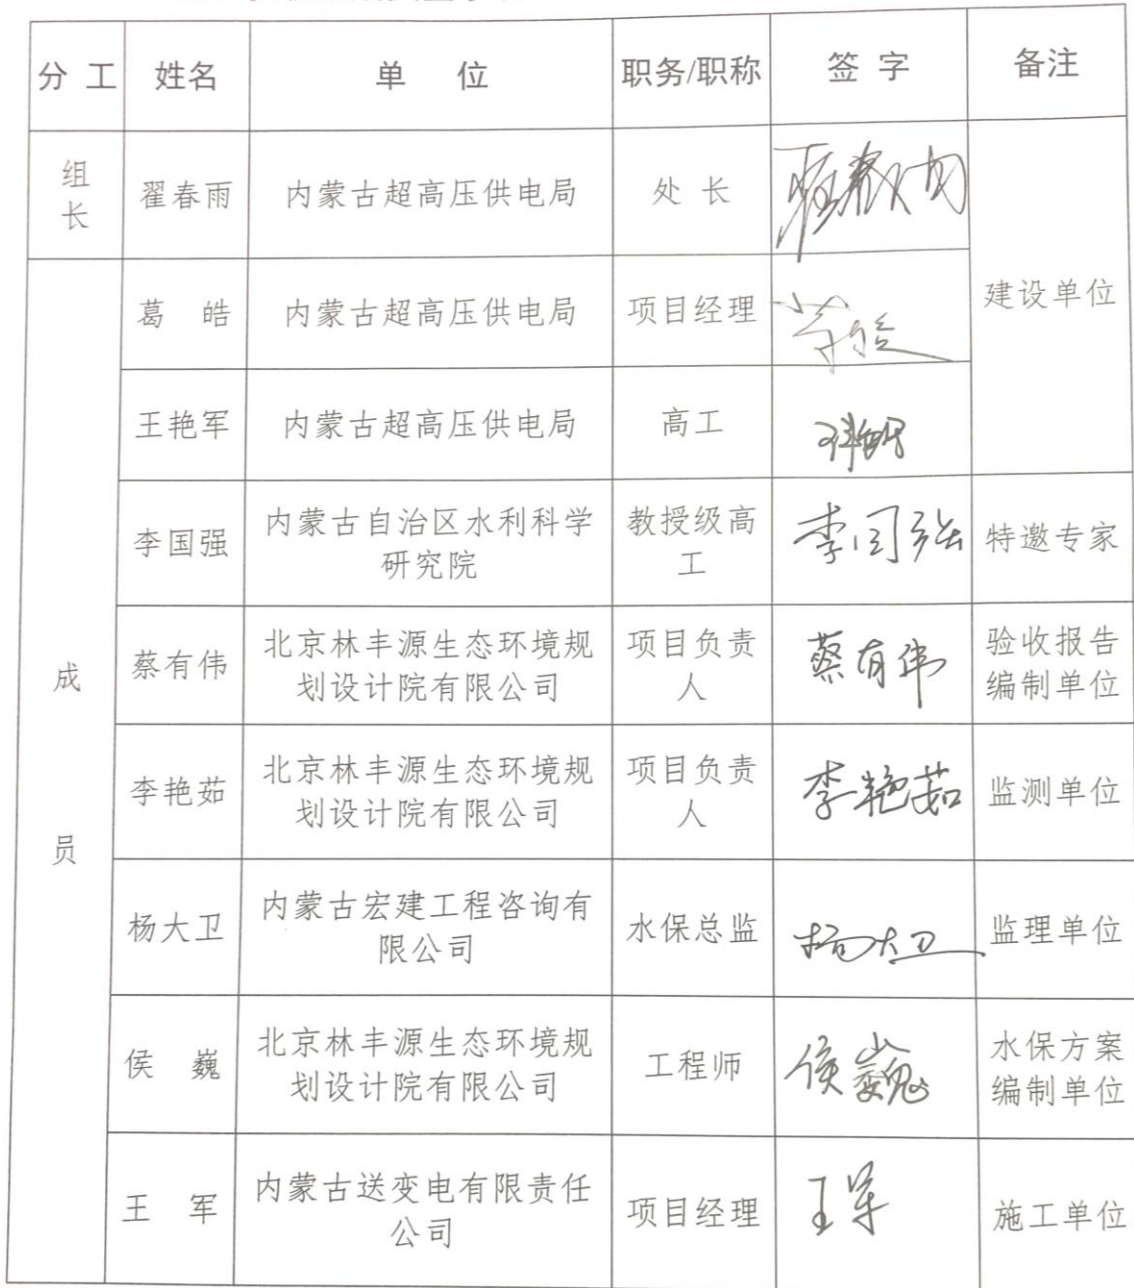 分 工 姓名 单 位 职务/职称 签 字 备注
组长 翟春雨 内蒙古超高压供电局 处 长
建设单位
葛 皓 内蒙古超高压供电局 项目经理
王艳军 内蒙古超高压供电局 高工
成员
李国强 内蒙古自治区水利科学
研究院 教授级高
工 李国强 特邀专家
蔡有伟 北京林丰源生态环境规
划设计院有限公司 项目负责
人 蔡有伟 验收报告
编制单位
李艳茹 北京林丰源生态环境规
划设计院有限公司 项目负责
人 李艳茹 监测单位
杨大卫 内蒙古宏建工程咨询有
限公司 水保总监 杨大卫 监理单位
侯 巍 北京林丰源生态环境规
划设计院有限公司 工程师 侯巍 水保方案
编制单位
王 军 内蒙古送变电有限责任
公司 项目经理 王军 施工单位